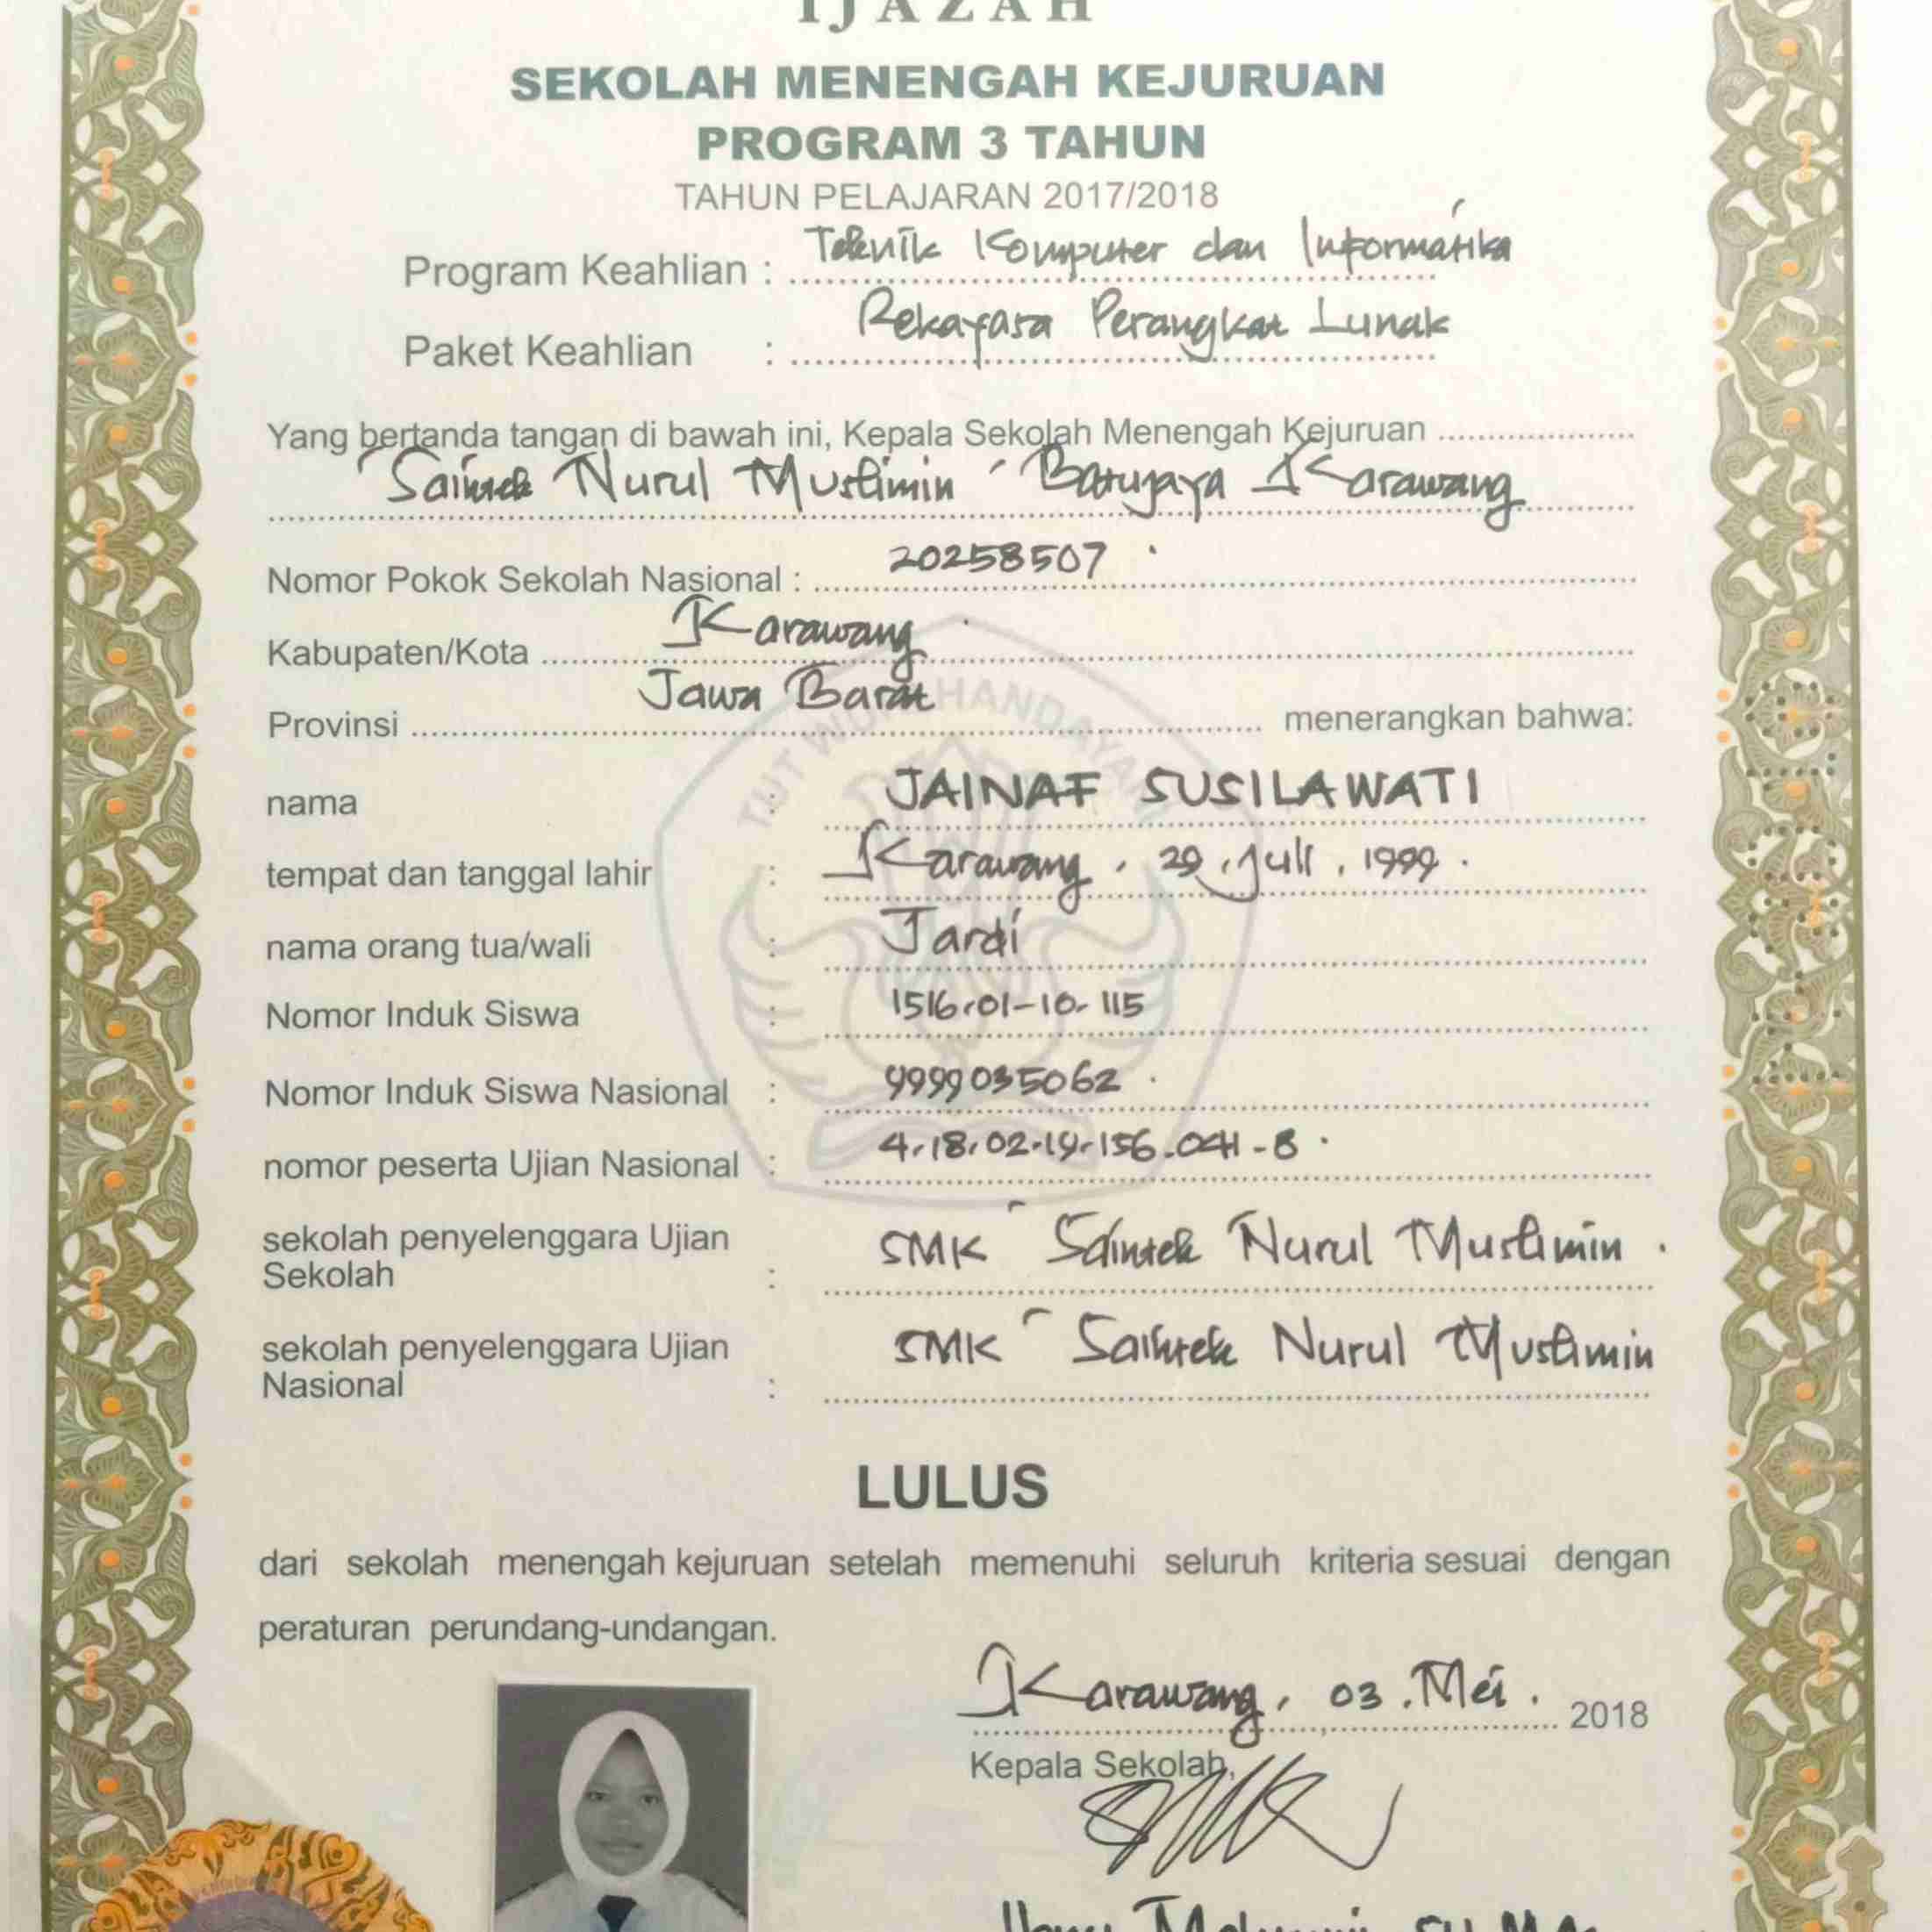 IJAZAH
SEKOLAH MENENGAH KEJURUAN
PROGRAM 3 TAHUN
TAHUN PELAJARAN 2017/2018
Program Keahlian : Teknik Komputer dan Informatika
Paket Keahlian : Rekayasa Perangkat Lunak
Yang bertanda tangan di bawah ini, Kepala Sekolah Menengah Kejuruan
Saintek Nurul Muslimin Batujaya Karawang
Nomor Pokok Sekolah Nasional : 20258507
Kabupaten/Kota Karawang
Provinsi Jawa Barat menerangkan bahwa:
nama : JAINAF SUSILAWATI
tempat dan tanggal lahir : Karawang, 29, Juli, 1999.
nama orang tua/wali : Jardi
Nomor Induk Siswa : 1516-01-10-115
Nomor Induk Siswa Nasional : 9999035062
nomor peserta Ujian Nasional :
sekolah penyelenggara Ujian
Sekolah : SMK Saintek Nurul Muslimin.
sekolah penyelenggara Ujian
Nasional : SMK Saintek Nurul Muslimin
LULUS
dari sekolah menengah kejuruan setelah memenuhi seluruh kriteria sesuai dengan
peraturan perundang-undangan.
Karawang, 03. Mei. 2018
Kepala Sekolah,
TUT WURI HANDAYANI